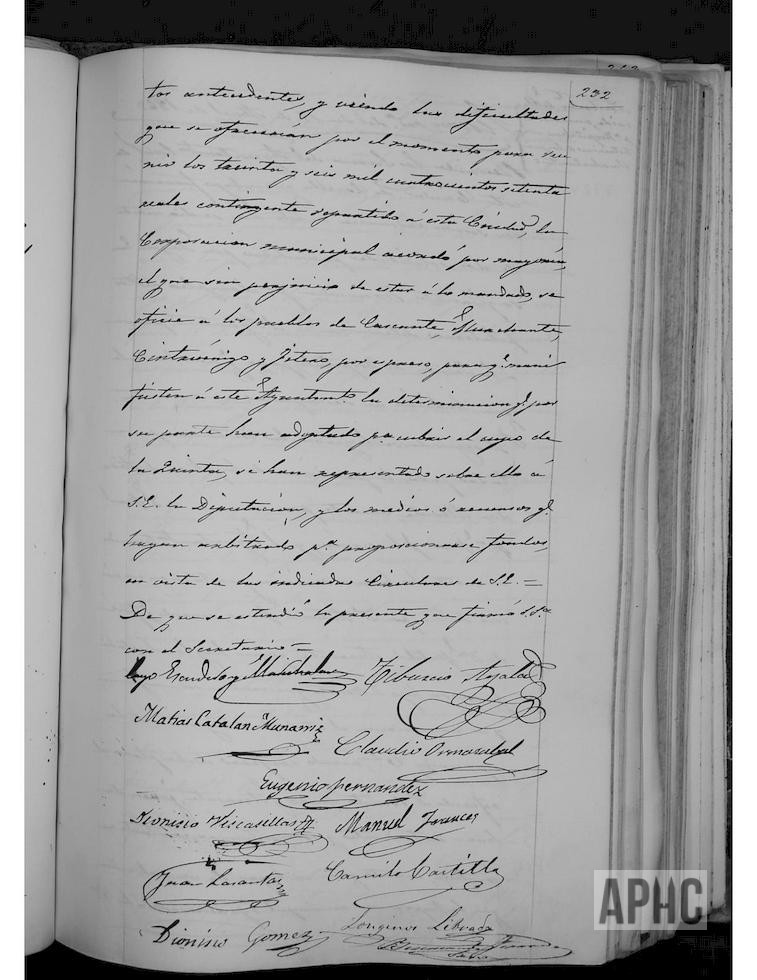 232
tos antecedentes, y viendo las dificultades
que se ofrecerían por el momento para reu
nir los treinta y seis mil cuatrocientos setenta
reales contingente repartido á esta Ciudad, la
Corporacion municipal acordó por mayoría,
el que sin perjuicio de estar á lo mandado, se
oficie á los pueblos de Cascante, Murchante,
Cintruénigo y Fitero, por espreso, para q.e mani
fiesten á este Ayuntam.to la determinacion q.e por
su parte han adoptado p.a cubrir el cupo de
la Quinta, si han representado sobre ello á
S.E. la Diputacion, y los medios ó recursos q.e
hayan arbitrado p.a proporcionarse fondos,
en vista de las indicadas Circulares de S.E. =
De que se estendió la presente que firmó S.Sa.
con el Secretario =
Escudero y Marichalar Tiburcio Ayala
Matias Catalan Munarriz
Claudio
Eugenio Fernandez
Dionisio Viscasillas Manuel Frances
Juan Lasanta Camilo Castilla
Dionisio Gomez Longinos Librada
APHC